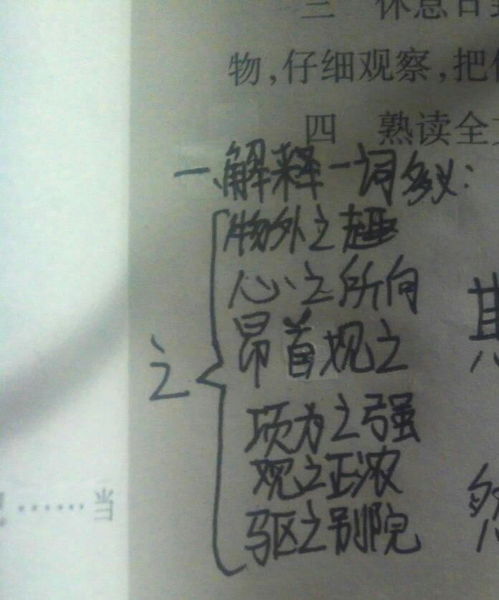 三 休息日
物,仔细观察,把
四 熟读全
一、解释一词多义:
之
物外之趣
心之所向
昂首观之
项为之强
观之正浓
驱之别院
其
然
当